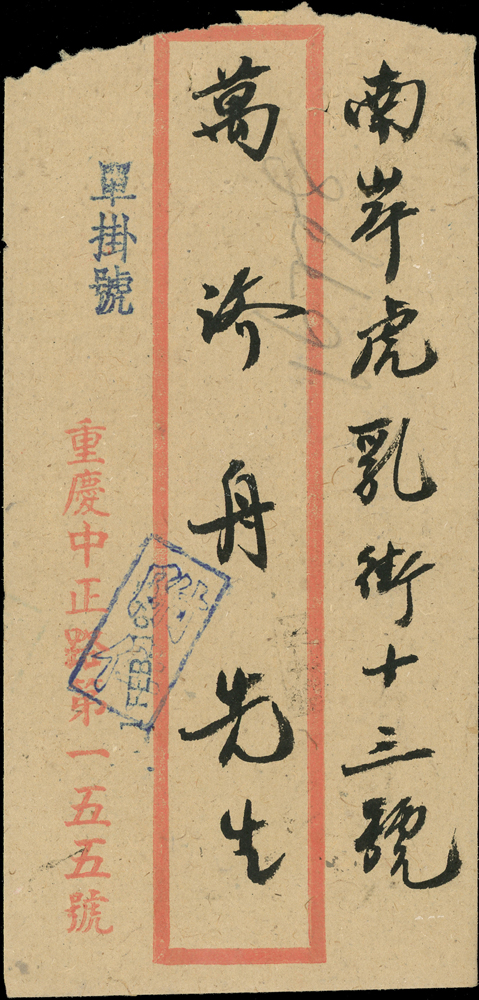 南岸虎乳街十三號
萬濟舟先生
單掛號
重慶中正路第一五五號
FEB